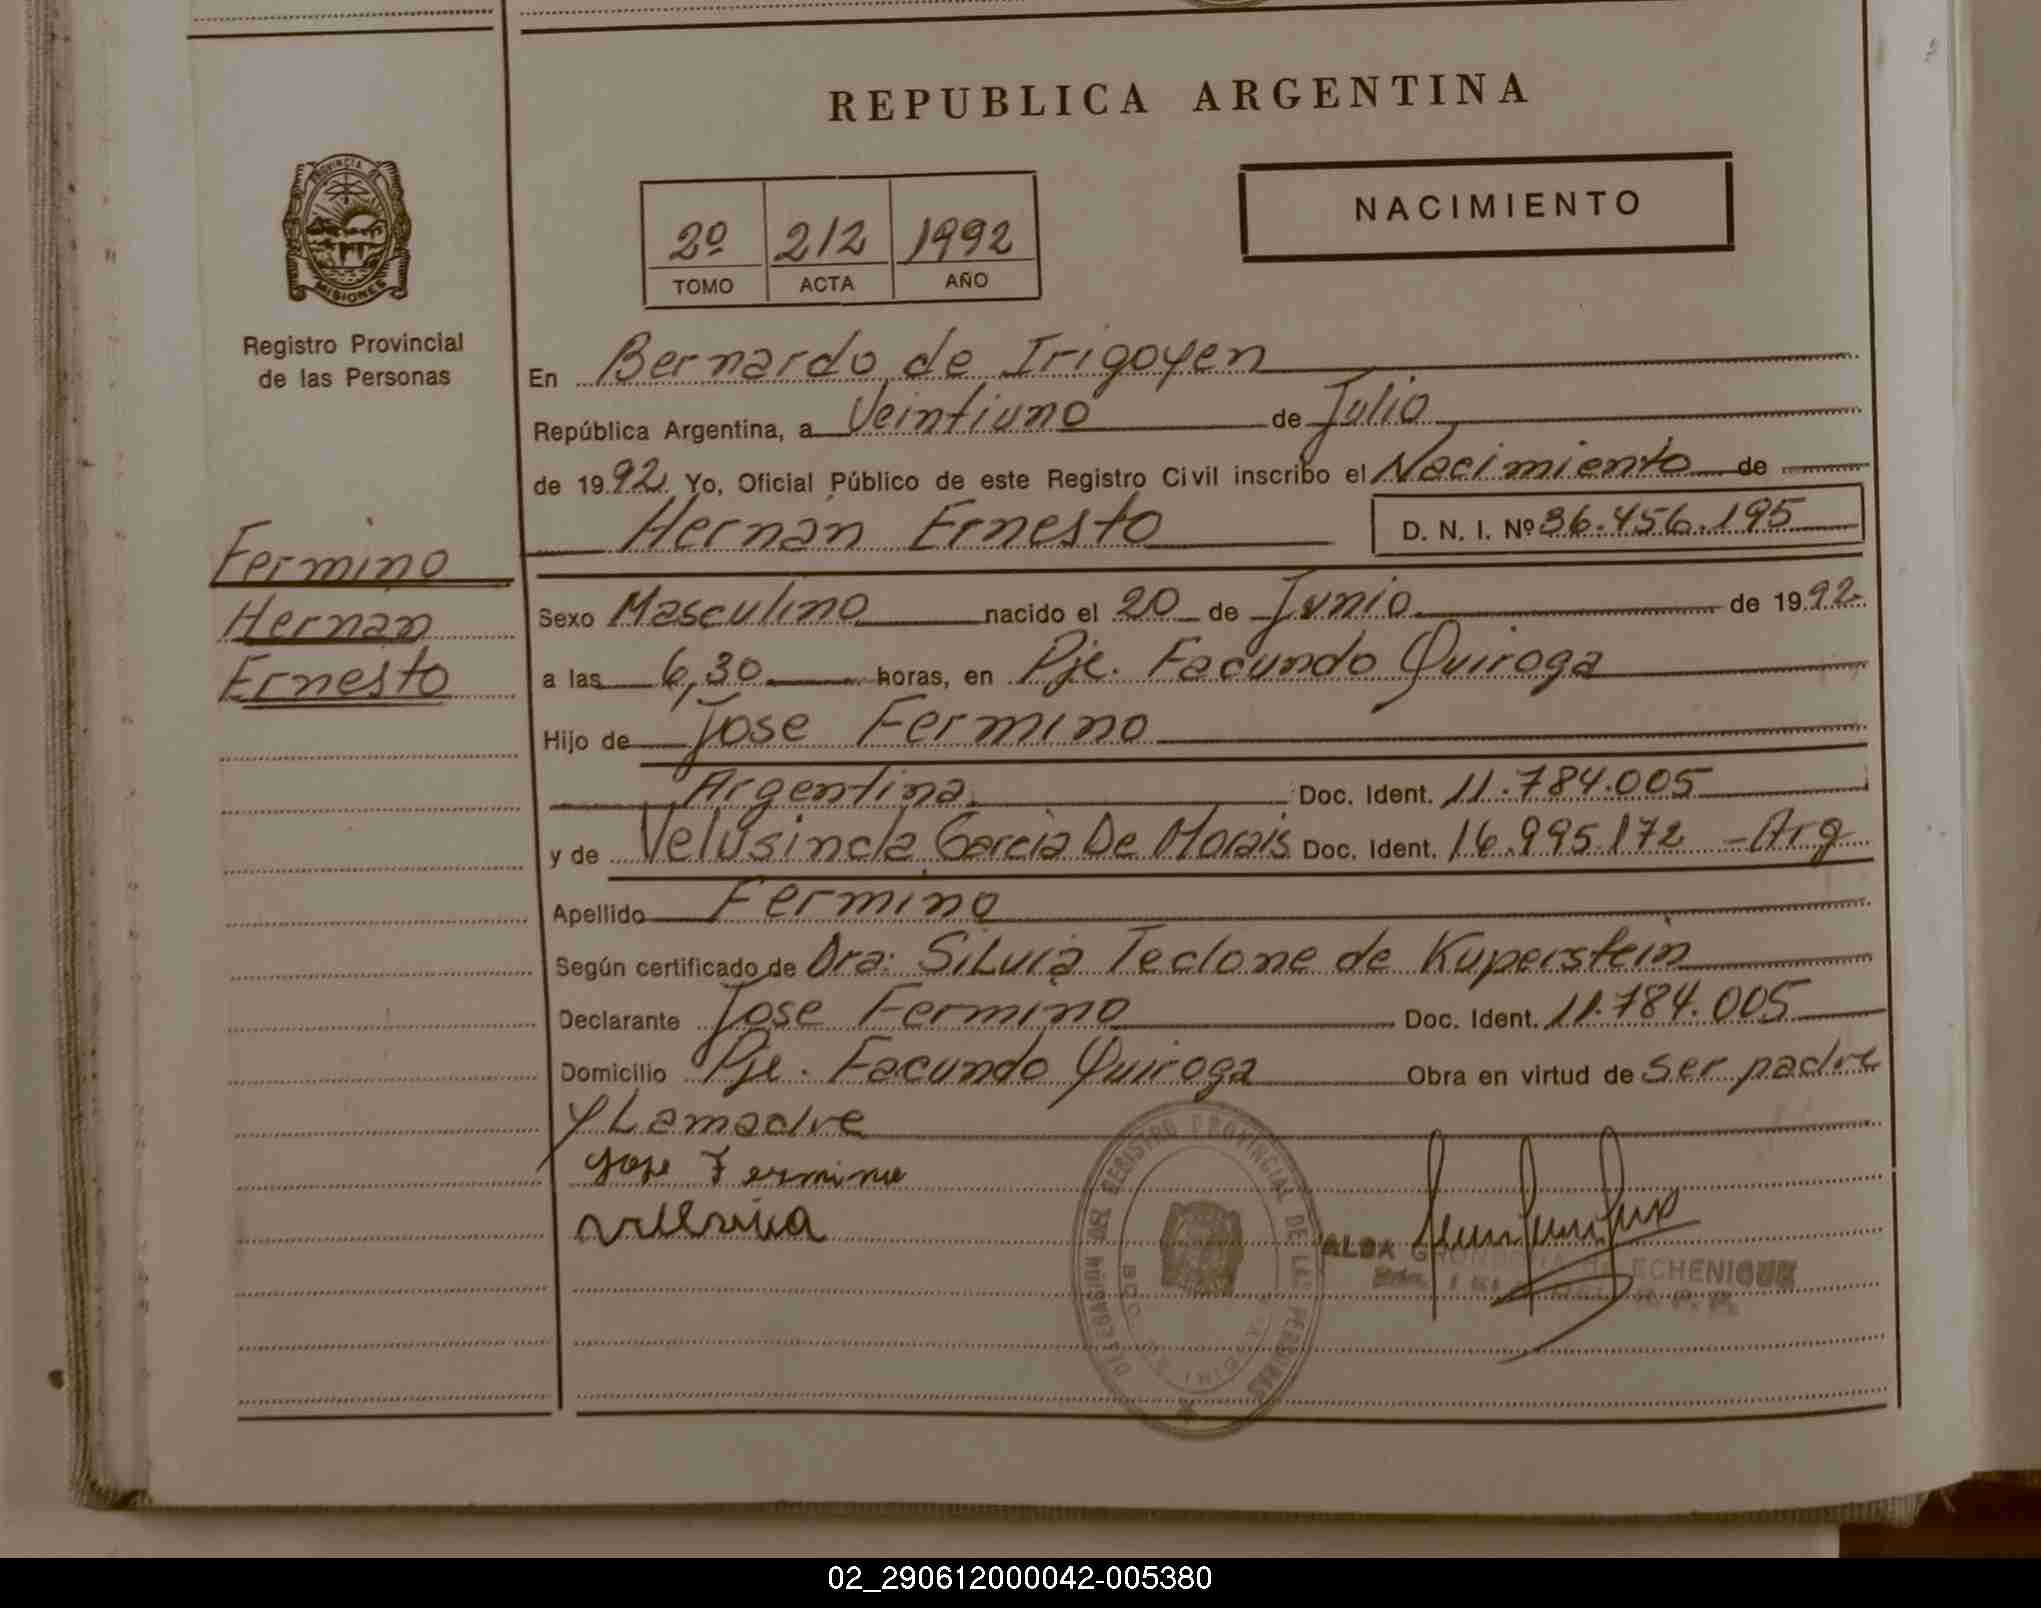 REPUBLICA ARGENTINA
NACIMIENTO
2º 212 1992
TOMO ACTA AÑO
PROVINCIA DE
MISIONES
Registro Provincial
de las Personas
Fermino
Hernán
Ernesto
En Bernardo de Irigoyen
República Argentina, a Veintiuno de Julio
de 1992 Yo, Oficial Público de este Registro Civil inscribo el Nacimiento de
Hernán Ernesto D. N. I. Nº 36.456.195
Sexo Masculino nacido el 20 de Junio de 1992
a las 6,30 horas, en Pje. Facundo Quiroga
Hijo de Jose Fermino
Argentina Doc. Ident. 11.784.005
y de Velusinda Garcia De Morais Doc. Ident. 16.995.172 - Arg
Apellido Fermino
Según certificado de Dra: Silvia Teclone de Kuperstein
Declarante Jose Fermino Doc. Ident. 11.784.005
Domicilio Pje. Facundo Quiroga Obra en virtud de ser padre
y La madre
Jose Fermino
DELEGACION DEL REGISTRO PROVINCIAL DE LAS PERSONAS
ALBA ECHENIQUE
02_290612000042-005380